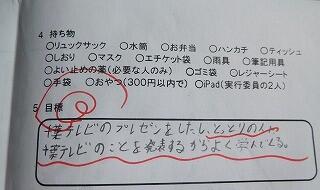 4 持ち物
○リュックサック ○水筒 ○お弁当 ○ハンカチ ○ティッシュ
○しおり ○マスク ○エチケット袋 ○雨具 ○筆記用具
○よい止めの薬(必要な人のみ) ○ゴミ袋 ○レジャーシート
○手袋 ○おやつ(300円以内で) ○iPad(実行委員の2人)
5 目標
葉テレビのプレゼンをしたし、とっとりの人
葉テレビのことを発表するからよく学んでくる。